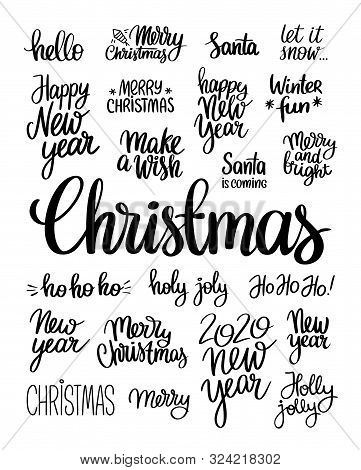 hello
Merry
Christmas
Santa
let it
snow...
Happy
New
year
MERRY
CHRISTMAS
happy
New
Year
Winter
* fun *
Make
a wish
Santa
is coming
Merry
and
bright
Christmas
ho ho ho
holy joly
Ho Ho Ho!
New
year
Merry
Christmas
2020
new
year
New
year
CHRISTMAS
Merry
Holly
jolly
Image ID: 324218302
bigstock.com